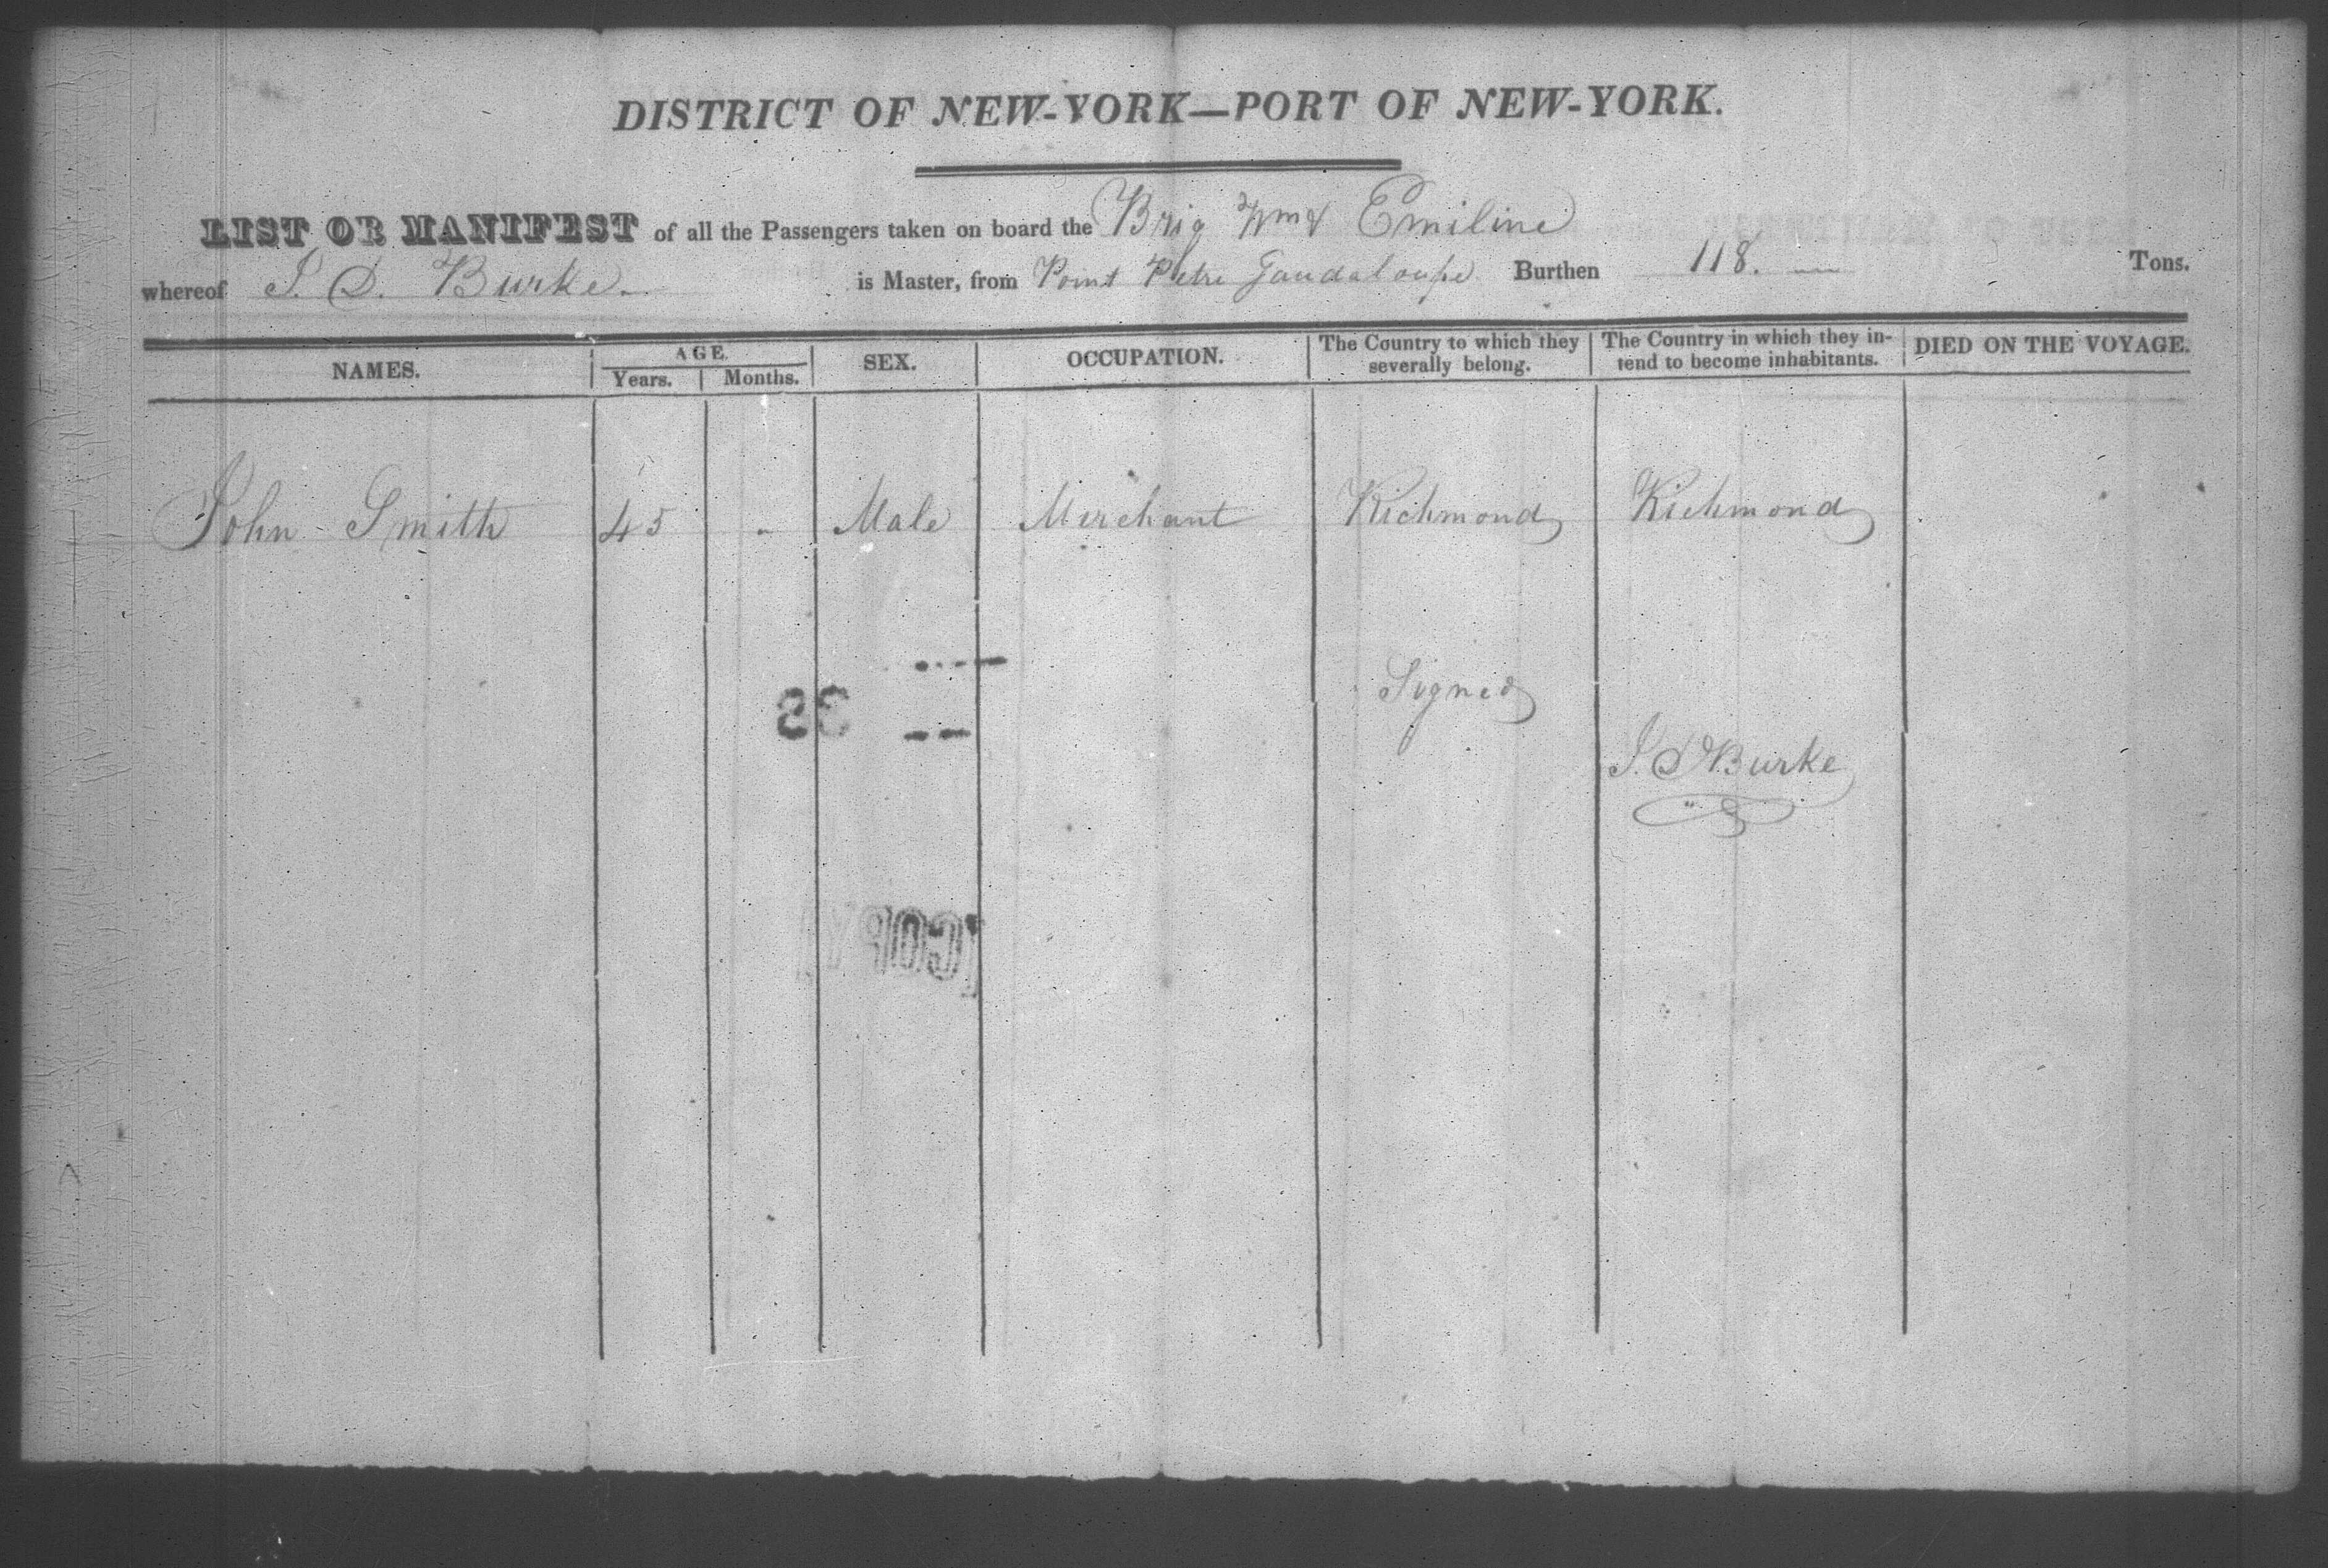 DISTRICT OF NEW-YORK—PORT OF NEW-YORK.
LIST OR MANIFEST of all the Passengers taken on board the Brig Wm & Emiline
whereof J. D. Burke is Master, from Point Petre Gaudaloupe Burthen 118. Tons.
NAMES. AGE. Years. Months. SEX. OCCUPATION. The Country to which they severally belong. The Country in which they intend to become inhabitants. DIED ON THE VOYAGE.
John Smith 45 - Male Merchant Richmond Richmond
Signed
J. D Burke
COPY